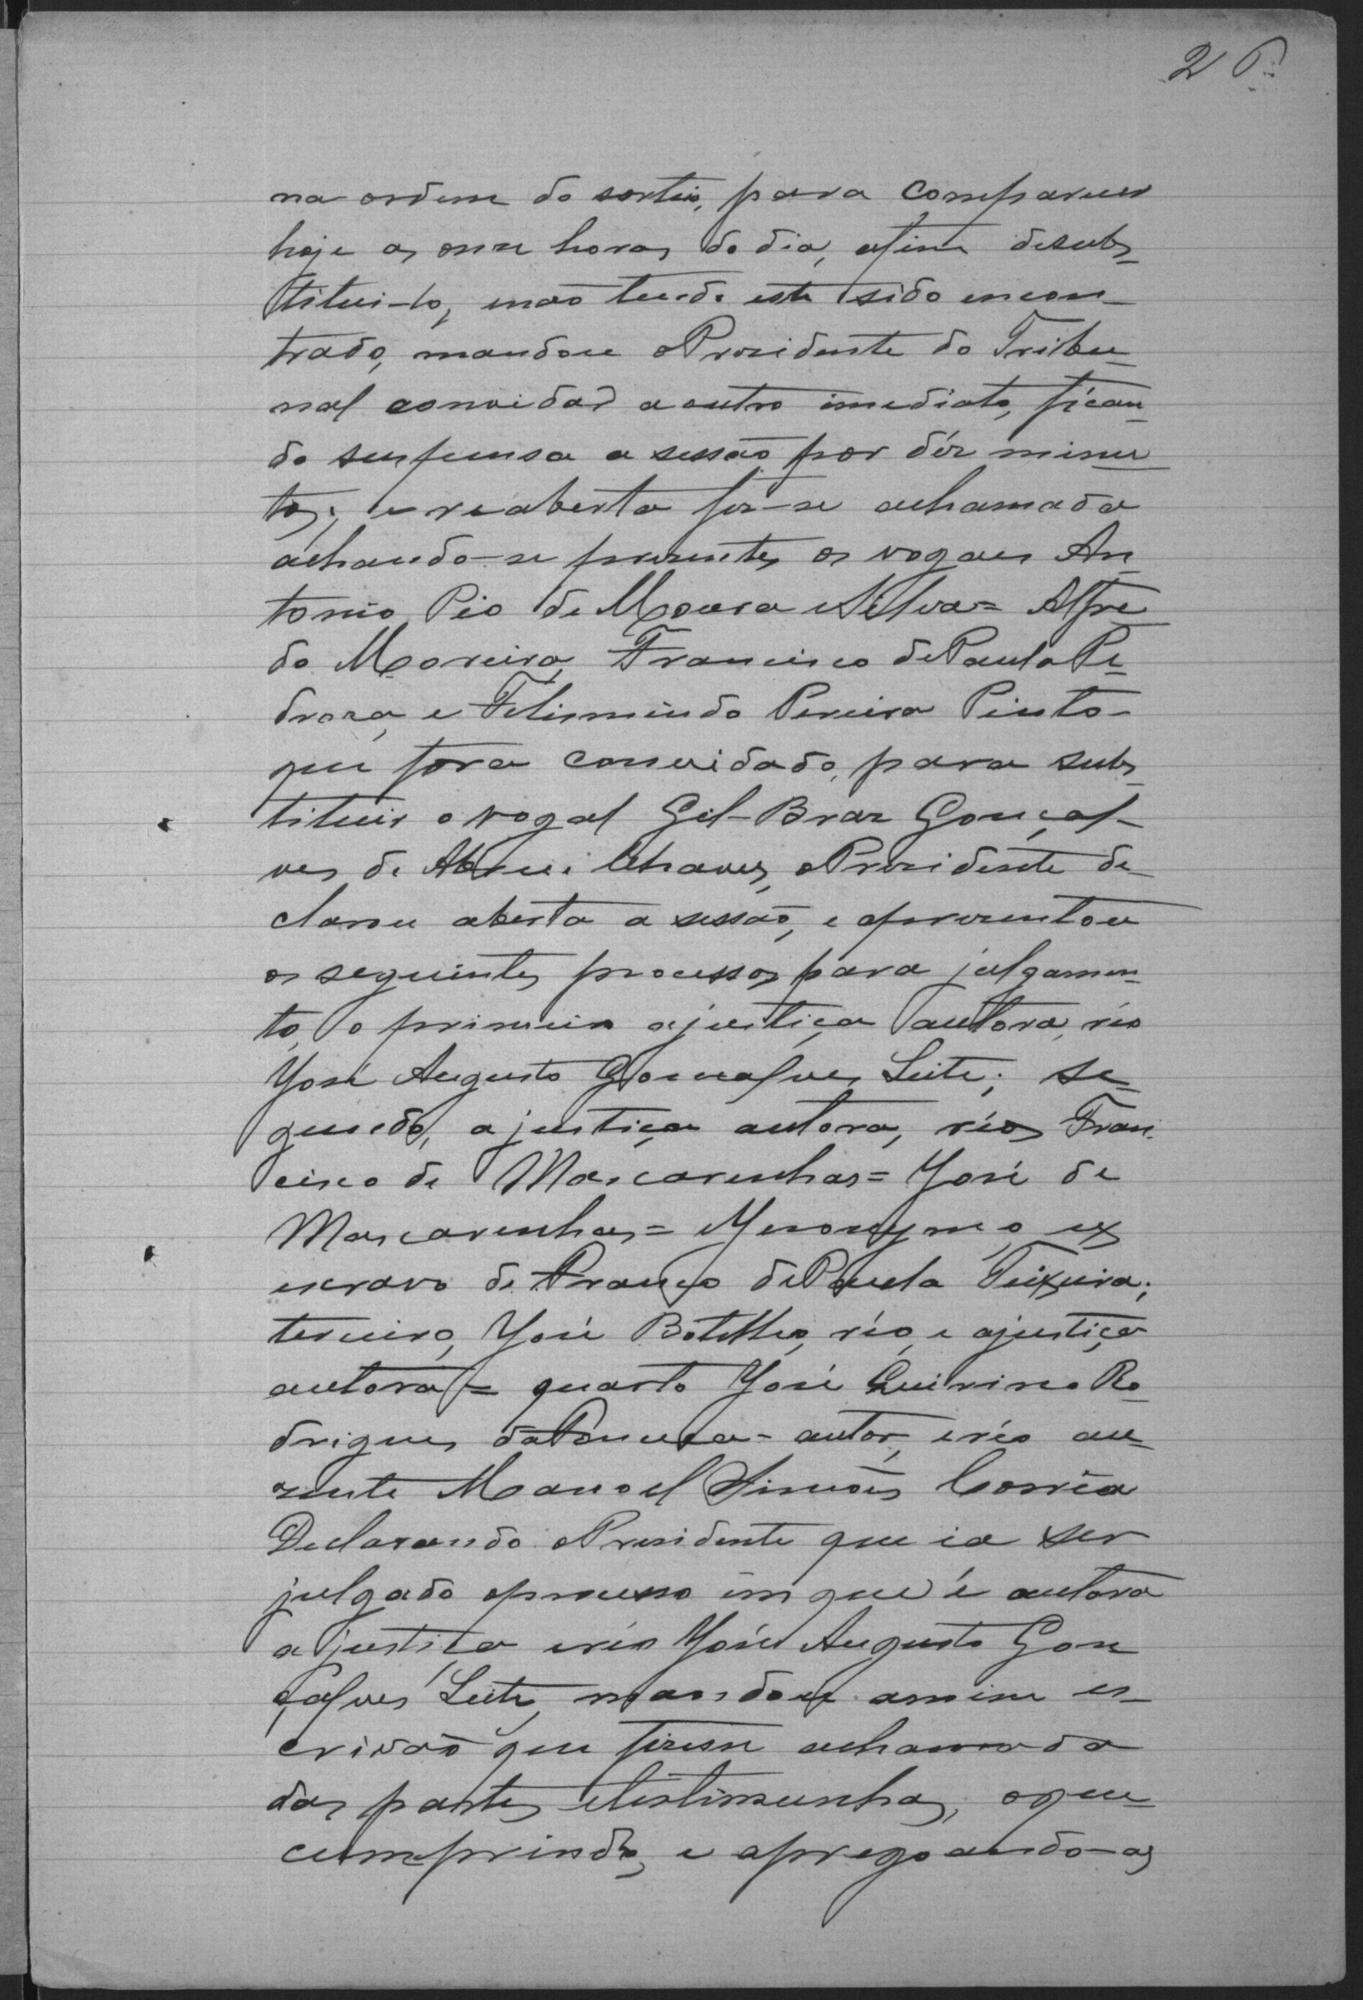 26
na ordem do sorteio, para comparecer
hoje as onze horas do dia, afim desubs-
titui-lo, enão tendo este sido encon-
trado, mandou oPrezidente do Tribu-
nal convidar aoutro imediato, fican-
do suspensa a sessão por déz minu-
tos; e reaberta fez-se achamada
achando-se prezentes os vogaes An-
tonio Pio de Moura eSilva= Alfre-
do Moreira, Francisco dePaula Pe-
droza, e Felismindo Pereira Pinto-
que fora convidado, para subs-
tituir o vogal Gil-Braz Gonçal-
ves de Abreu e Chaves, oPrezidente de-
clarou aberta a sessão, e aprezentou
os seguintes processos para julgamen-
to, o primeiro ajustiça autora, réo
José Augusto Gonçalves Leite; se-
gundo, a justiça autora, réos Fran-
cisco de Mascarenhas= José de
Mascarenhas= eJeronymo, ex
escravo de Franco dePaula Teixeira;
terceiro, José Botelho, réo, e ajustiça
autora= quarto José Quirino Ro-
drigues daFonceca- autor, eréo au-
zente Manoel Simões Corrêa
Declarando oPresidente que ia ser
julgado oprocesso em que é autora
a justiça eréo José Augusto Gon
çalves Leite, mandou amim es-
crivão que fizesse achamada
das partes etestimunhas, oque
cumprindo, e apregoando-as